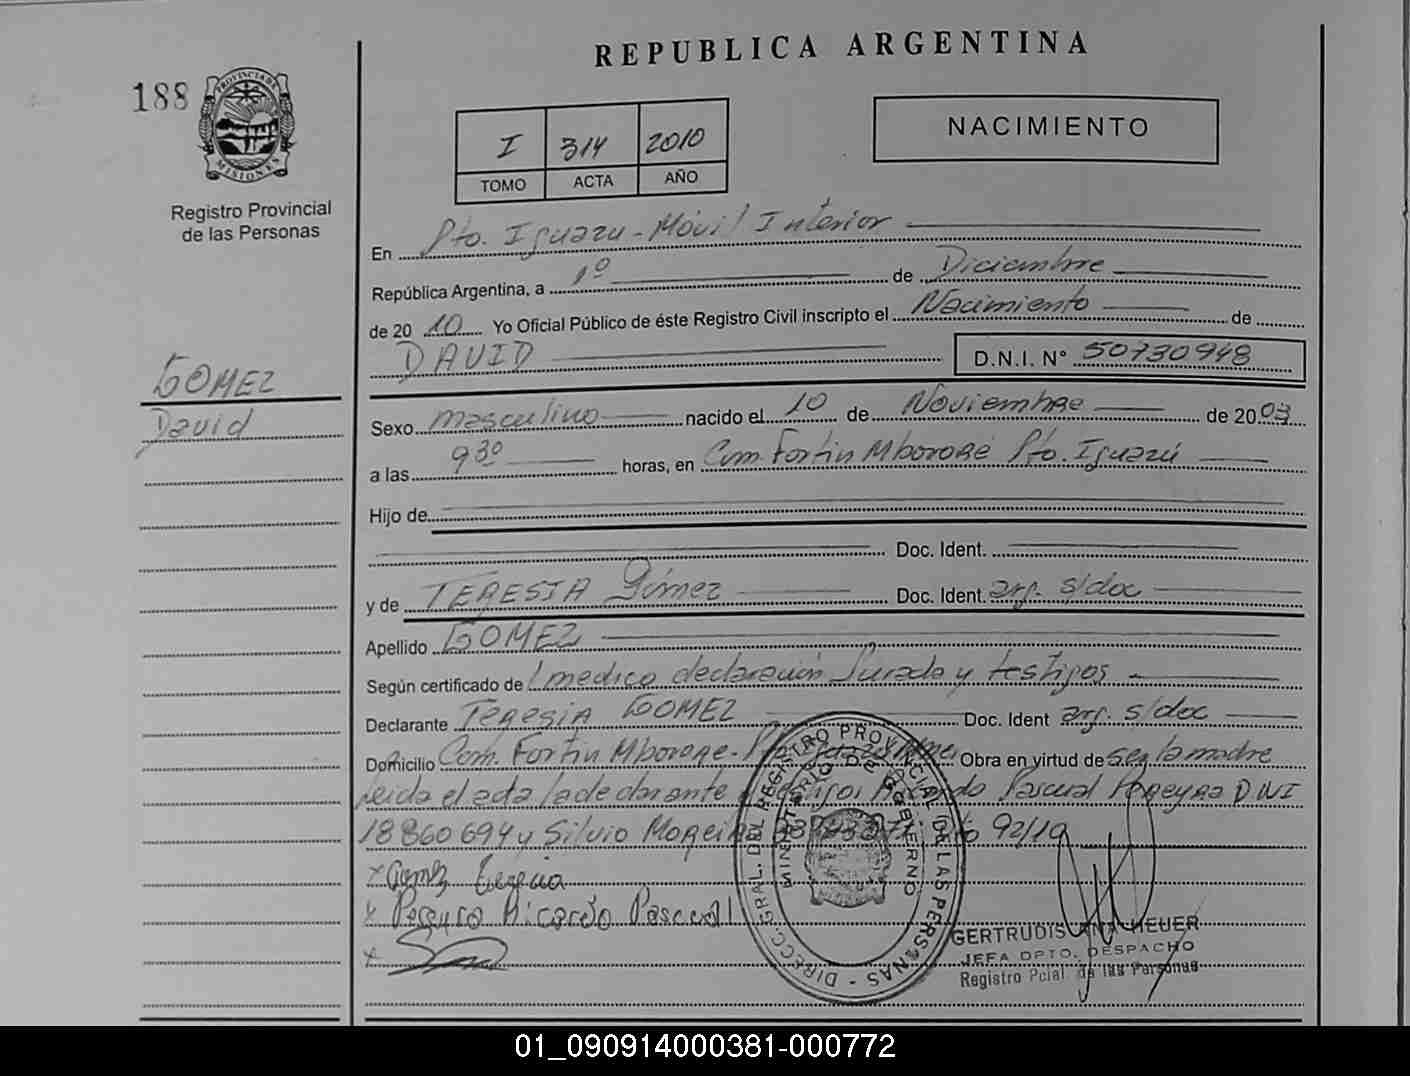 REPUBLICA ARGENTINA
188
PROVINCIA DE MISIONES
Registro Provincial
de las Personas
I 314 2010
TOMO ACTA AÑO
NACIMIENTO
En Pto. Iguazu - Móvil Interior
República Argentina, a 1º de Diciembre
de 20 10 Yo Oficial Público de éste Registro Civil inscripto el Nacimiento de
DAVID D.N.I. N° 50730948
GOMEZ
David
Sexo masculino nacido el 10 de Noviembre de 2003
a las 9 30 horas, en Com. Fortin Mbororé Pto. Iguazú
Hijo de
Doc. Ident.
y de TERESIA Gómez Doc. Ident. arg. s/doc
Apellido GOMEZ
Según certificado de medico declaración Jurada y testigos
Declarante Teresia GOMEZ Doc. Ident arg. s/doc
Domicilio Com. Fortin Mborore - Obra en virtud de ser la madre
leida el acta la declarante Pascual Pereyra DNI
18860694 y Silvio Moreira 92/10
x Gomez
x Ricardo Pascual
x
DIRECC. GRAL. DEL REGISTRO PROVINCIAL DE LAS PERSONAS
MINISTERIO DE GOBIERNO
GERTRUDIS ANA HEUER
JEFA DPTO. DESPACHO
Registro Pcial de las Personas
01_090914000381-000772